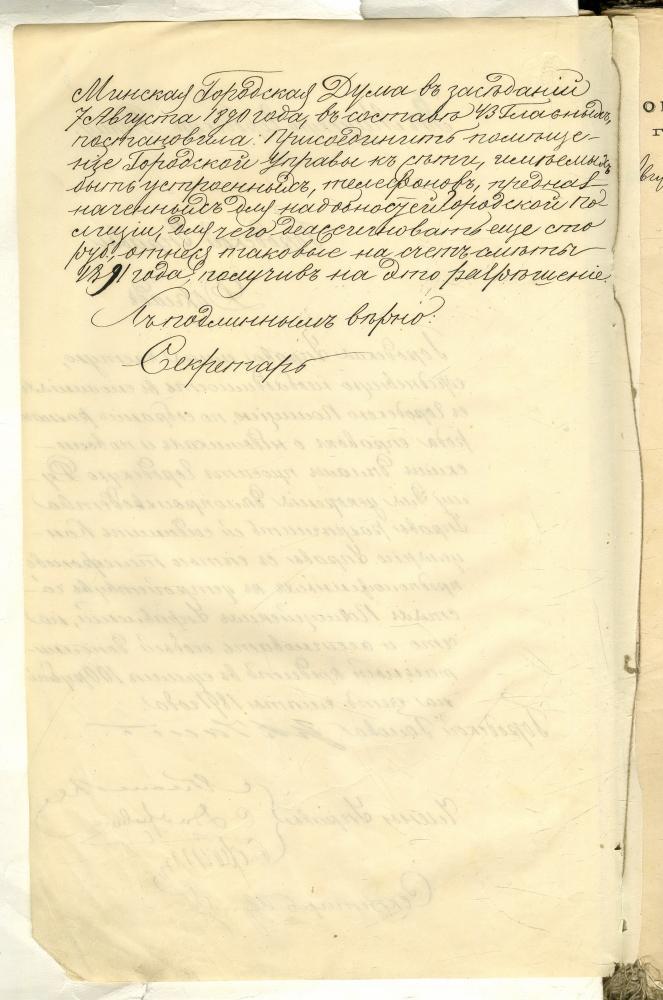 Минская Городская Дума въ засѣданіи
7 Августа 1890 года, въ составѣ 43 Гласныхъ,
постановила: Присоединить помѣще-
ніе Городской Управы къ сѣти, имѣемыхъ
быть устроенныхъ, телефоновъ, предназ-
наченныхъ для надобностей Городской По-
лиціи, для чего доассигновать еще сто
руб., отнеся таковые на счетъ смѣты
1891 года, получивъ на это разрѣшеніе.
Съ подлиннымъ вѣрно:
Секретарь